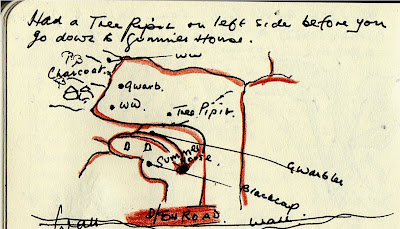 Had a Tree Pipit on left side before you
go down to Summer House.
PB
WW
Charcoat
PB
Gwarb.
WW.
Tree Pipit.
D D
Summer
House
GWarbler
Blackcap
ROAD
Wall